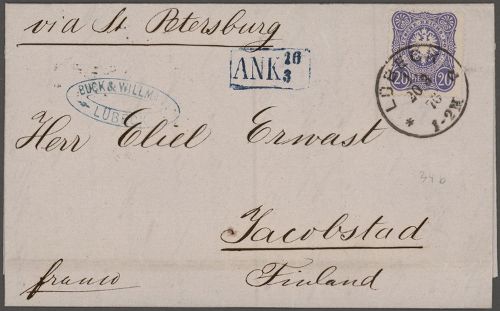 via St Petersburg
ANK 16/3
BUCK & WILLM
LÜB
LÜBECK
20 3 76
1-2N
20 20
Herr Eliel Erwast
34b
Jacobstad
Finland
franco